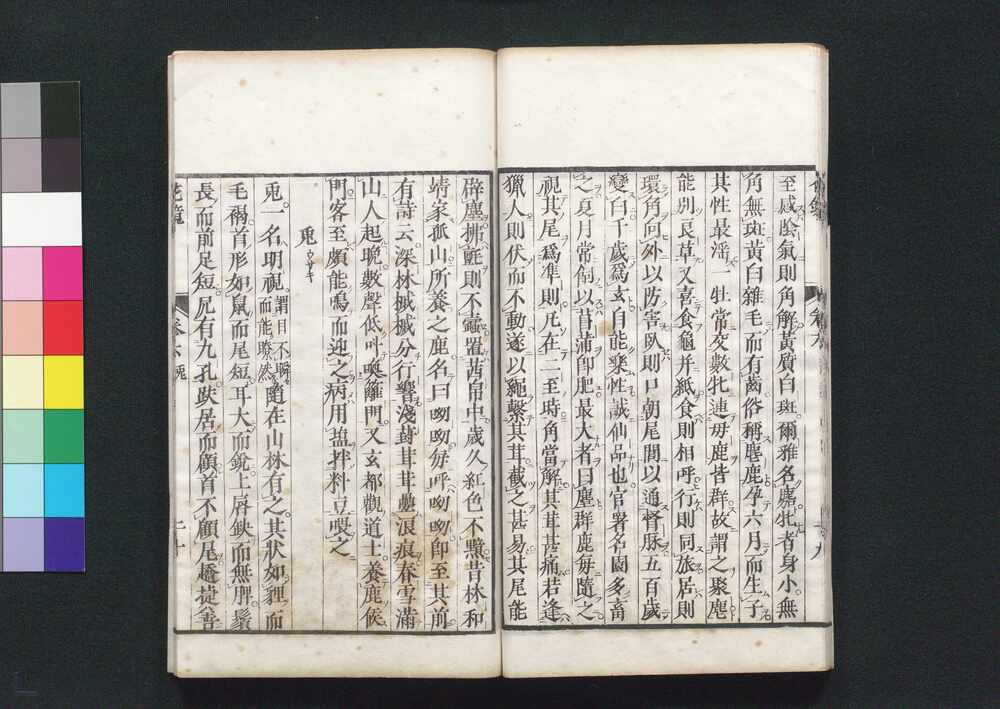 至感陰氣則角解黃質白斑爾雅名麀牝者身小無
角無斑黃白雜毛而有齒俗稱麀鹿孕六月而生子
其性最滛一牡常交數牝連母鹿皆群故謂之聚麀
能別良草又喜食龜并紙食則相呼行則同旅居則
環角向外以防害臥則口朝尾閭以通督脉五百歲
變白千歲爲玄自能樂性誠仙品也官署名園多畜
之夏月常飼以菖蒲卽肥最大者曰麈群鹿每隨之
視其尾爲準則凡在二至時角當解其茸甚痛若逢
獵人則伏而不動遂以繩繫其茸截之甚易其尾能
辟塵拂氈則不蠹置茜帛中歲久紅色不黦昔林和
靖家孤山所養之鹿名曰呦呦每呼呦呦卽至其前
有詩云深林摵摵分行響淺葑茸茸疊浪痕春雪滿
山人起晩數聲低叫喚籬門又玄都觀道士養鹿候
門客至頗能鳴而迎之病用塩拌料豆喂之
兎 ウサキ
兎一名明視謂目不瞬而能瞭然隨在山林有之其狀如貍而
毛褐首形如鼠而尾短耳大而銳上唇缺而無脾鬚
長而前足短尻有九孔趺居而顧首不顧尾趫捷善
花鏡 卷六 二十